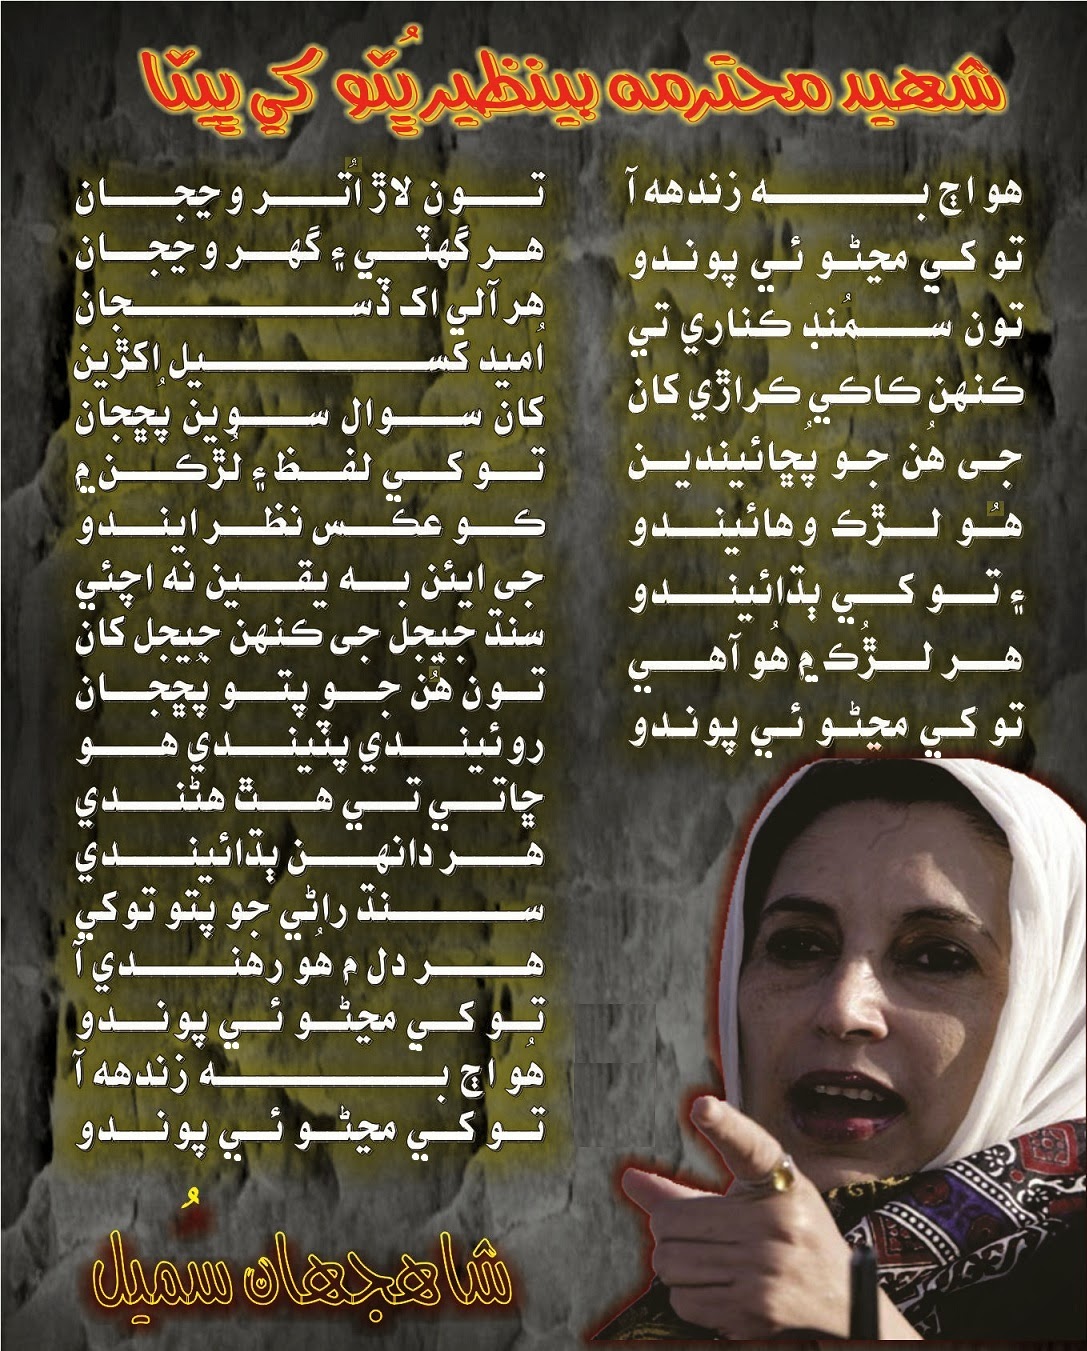 شهيد محترمه بينظير ڀُٽو کي ڀيٽا
هو اڄ بـــه زندهه آ
تو کي مڃڻو ئي پوندو
تون سمُنڊ ڪناري تي
ڪنهن ڪاڪي ڪراڙي کان
جي هُن جو پُڇائيندين
هُو لڙڪ وهائيندو
۽ تو کي ٻڌائيندو
هر لڙڪ ۾ هُو آهي
تو کي مڃڻو ئي پوندو
تون لاڙ اُتر وڃجان
هر گهٽي ۽ گهر وڃجان
هر آلي اک ڏسجان
اُميد ڪسيل اکڙين
کان سوال سوين پُڇجان
تو کي لفظ ۽ لُڙڪن ۾
ڪو عڪس نظر ايندو
جي ايئن به يقين نه اچئي
سنڌ جيجل جي ڪنهن جيجل کان
تون هُن جو پتو پُڇجان
روئيندي پٽيندي هو
ڇاتي تي هٿ هڻندي
هر دانهن ٻڌائيندي
سنڌ راڻي جو پتو توکي
هر دل ۾ هُو رهندي آ
تو کي مڃڻو ئي پوندو
هُو اڄ به زندهه آ
تو کي مڃڻو ئي پوندو
شاهجهان سُميل